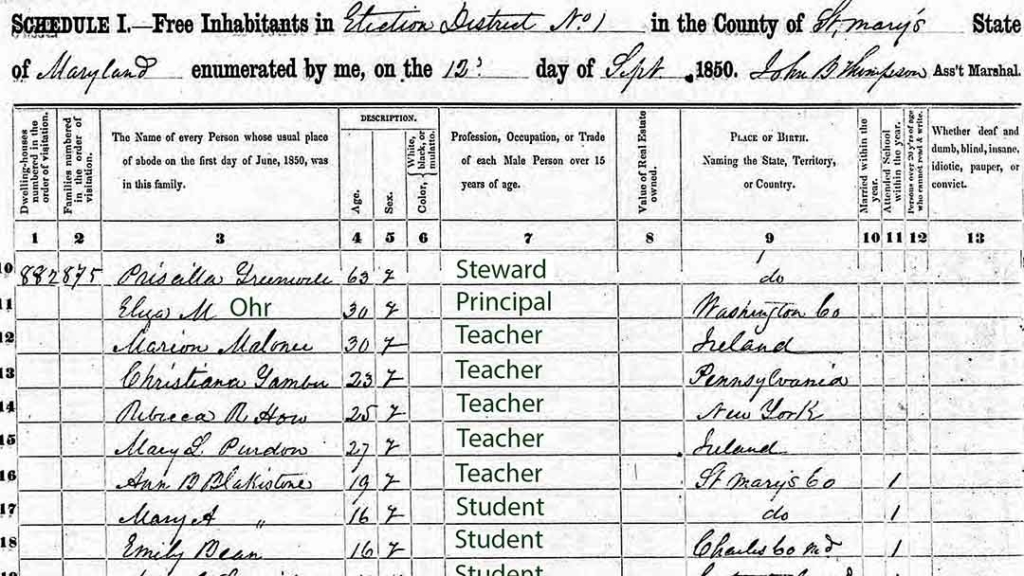 SCHEDULE I.—Free Inhabitants in Election District No 1 in the County of St. Mary's State
of Maryland enumerated by me, on the 12 day of Sept. 1850. John B Thompson Ass't Marshal.
Dwelling-houses numbered in the order of visitation.
Families numbered in the order of visitation.
The Name of every Person whose usual place
of abode on the first day of June, 1850, was
in this family.
DESCRIPTION.
Age.
Sex.
Color, { White, black, or mulatto.
Profession, Occupation, or Trade
of each Male Person over 15
years of age.
Value of Real Estate owned.
PLACE OF BIRTH.
Naming the State, Territory,
or Country.
Married within the year.
Attended School within the year.
Persons over 20 y'rs of age who cannot read & write.
Whether deaf and
dumb, blind, insane,
idiotic, pauper, or
convict.
1 2 3 4 5 6 7 8 9 10 11 12 13
10 882 875 Priscilla Greenwell 63 F Steward do
11 Eliza M Ohr 30 F Principal Washington Co
12 Marion Malonee 30 F Teacher Ireland
13 Christiana 23 F Teacher Pennsylvania
14 Rebecca R How 25 F Teacher New York
15 Mary L Purdon 27 F Teacher Ireland
16 Ann B Blakistone 19 F Teacher St Mary's Co 1
17 Mary A " 16 F Student do 1
18 Emily Bean 16 F Student Charles Co Md 1
Student